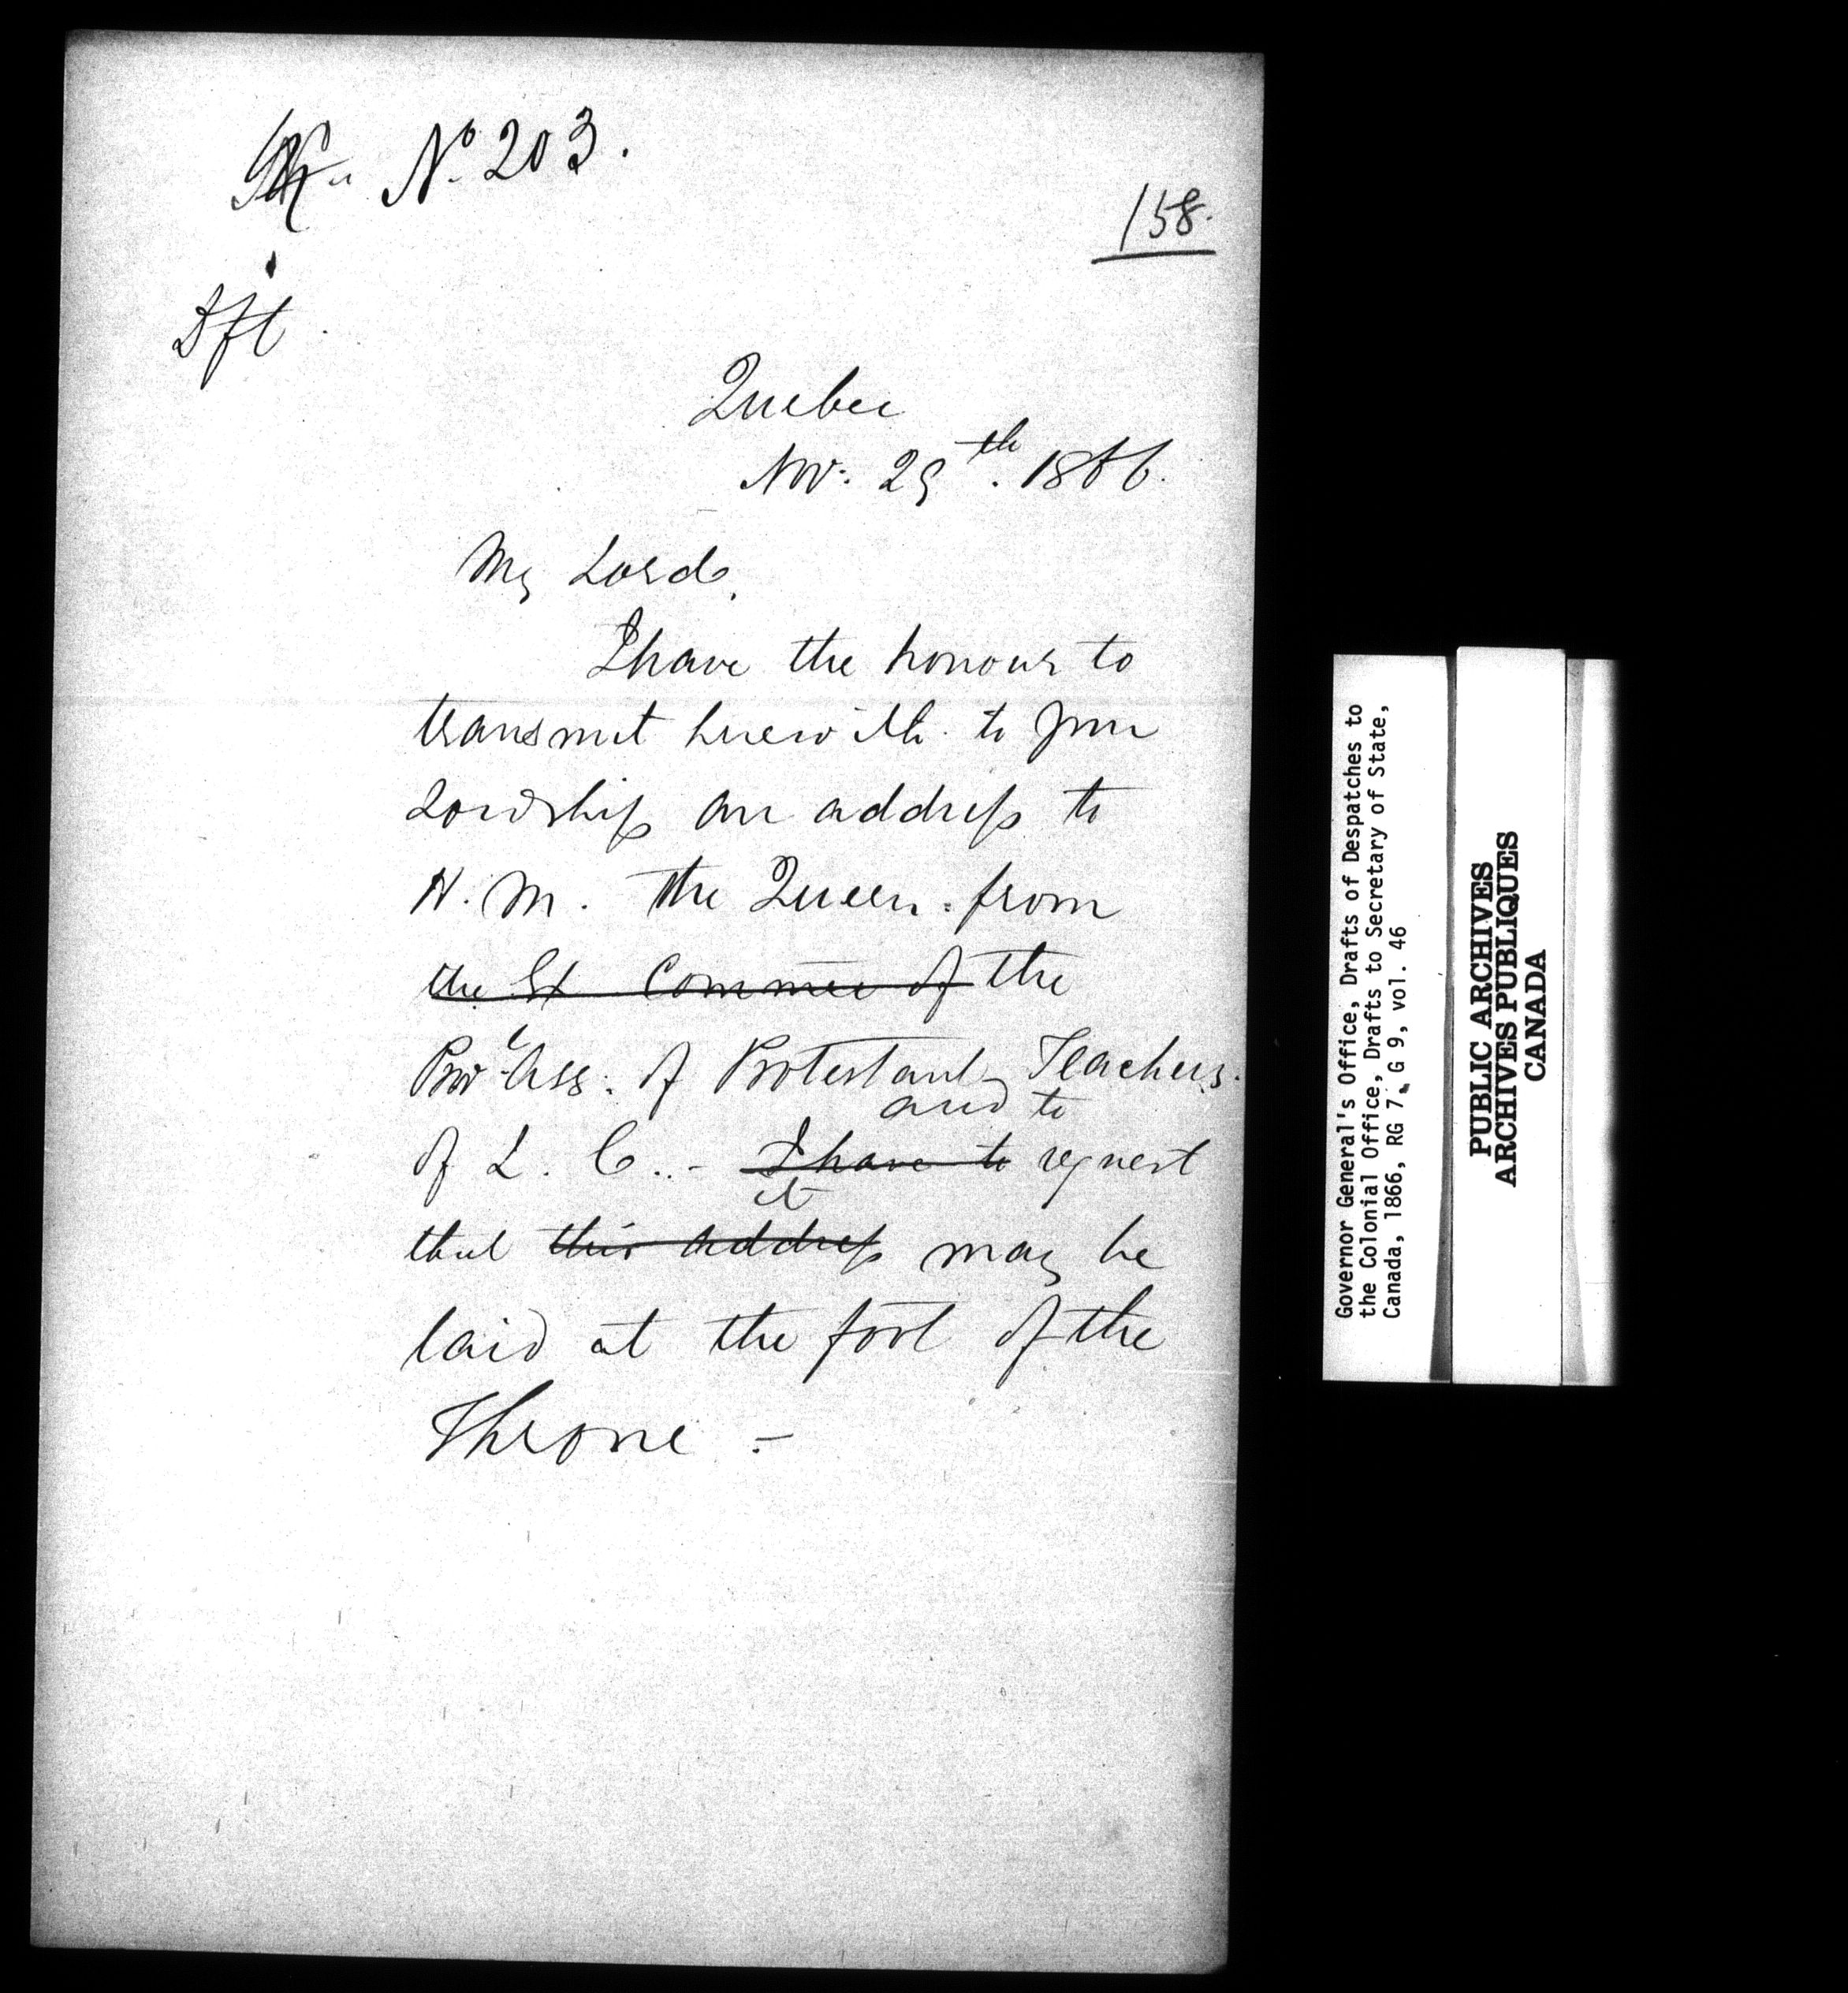 No. 203.
158.
Dft.
Quebec
Nov. 29th. 1866.
My Lord,
I have the honour to
transmit herewith to your
Lordship an address to
H. M. the Queen from
the Ex Commee of the
Provl Ass. of Protestant Teachers.
and to
of L. C. - I have to request
it
that this address may be
laid at the foot of the
Throne -
Governor General's Office, Drafts of Despatches to
the Colonial Office, Drafts to Secretary of State,
Canada, 1866, RG 7, G 9, vol. 46
PUBLIC ARCHIVES
ARCHIVES PUBLIQUES
CANADA